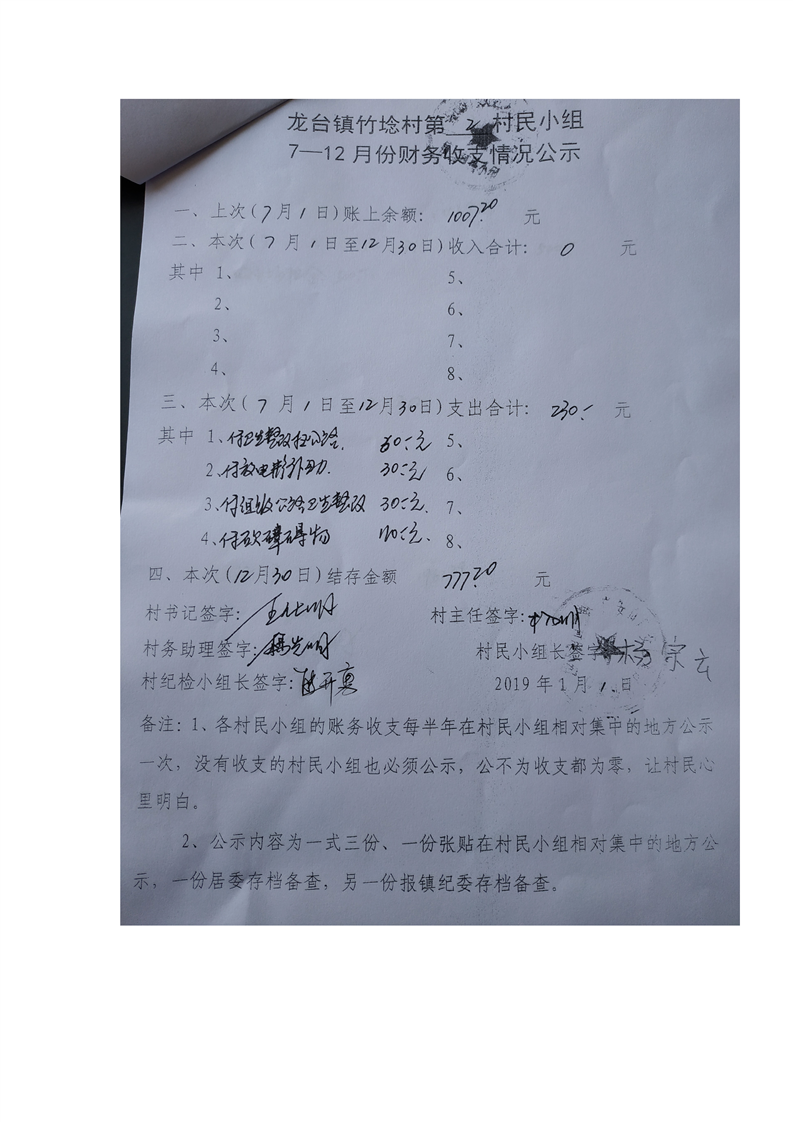 龙台镇竹埝村第 2 村民小组
7—12月份财务收支情况公示
一、上次(7月1日)账上余额: 1007.20 元
二、本次(7月1日至12月30日)收入合计: 0 元
其中 1、 5、
2、 6、
3、 7、
4、 8、
三、本次(7月1日至12月30日)支出合计: 230.- 元
其中 1、付卫生整改扫公路. 60.-元 5、
2、付放电影 30.-元 6、
3、付组级公路卫生整改 30.-元. 7、
4、付砍障碍物 110.-元. 8、
四、本次(12月30日)结存金额 777.20 元
村书记签字: 村主任签字:
村务助理签字: 村民小组长签字: 杨宗云
村纪检小组长签字: 2019年1月1日
备注:1、各村民小组的账务收支每半年在村民小组相对集中的地方公示
一次,没有收支的村民小组也必须公示,公不为收支都为零,让村民心
里明白。
2、公示内容为一式三份、一份张贴在村民小组相对集中的地方公
示,一份居委存档备查,另一份报镇纪委存档备查。